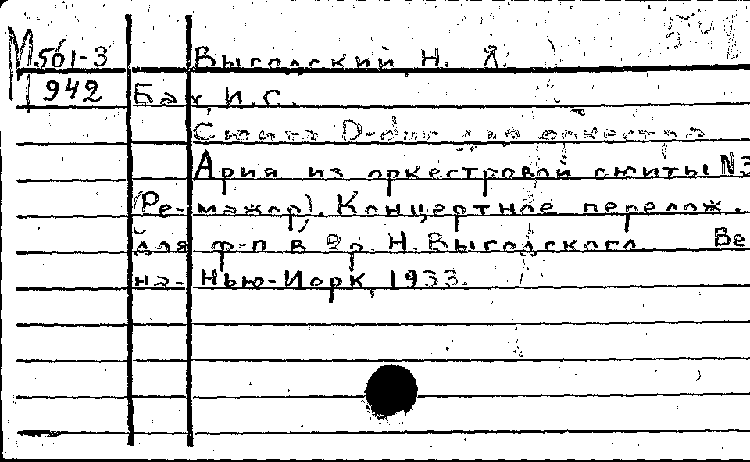 М561-3 Выгодский Н. Я.
942 Бах, И.С.
Сюита D-dur для оркестра
Ария из оркестровой сюиты N3
(Ре-мажор). Концертное перелож.
для ф-п в 2р. Н. Выгодского. Ве
на- Нью-Йорк, 1933.